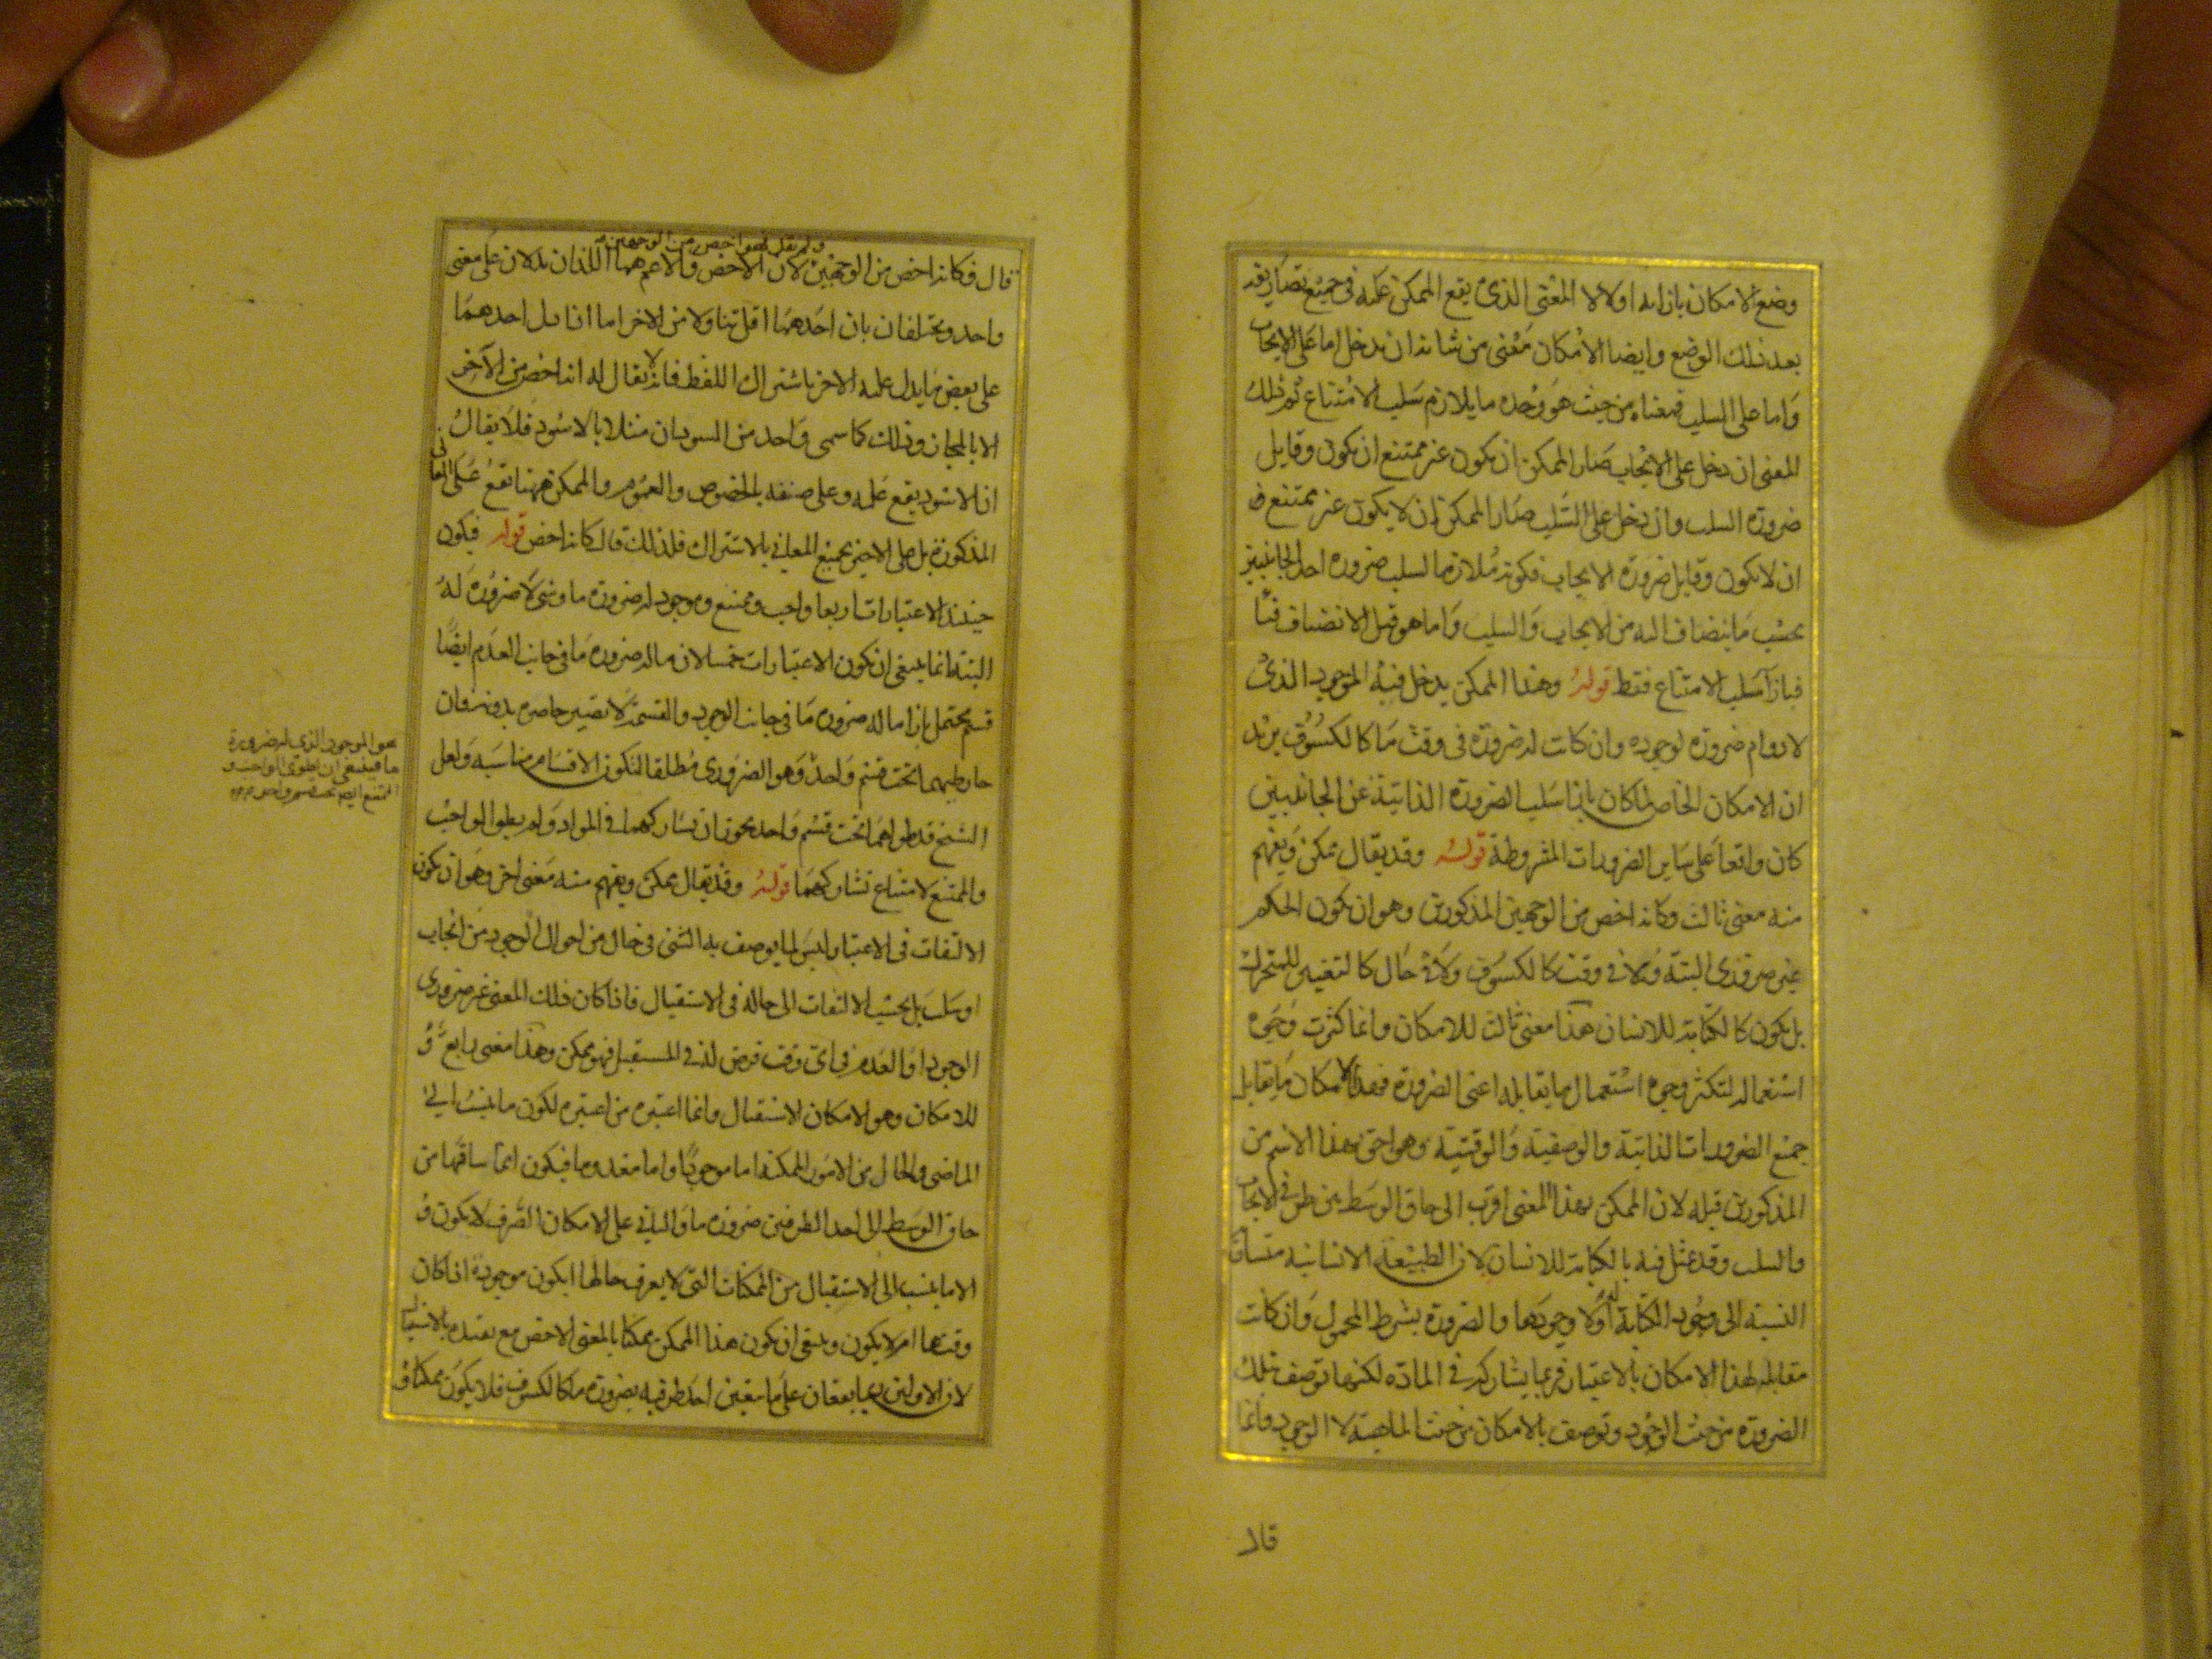 وضع الامكان بازائه اولا لا المعنى الذى يقع الممكن عليه فى جميع تصاريفه
بعد ذلك الوضع وايضا الامكان معنى من شانه ان يدخل اما على الايجاب
واما على السلب فمعناه من حيث هو وحده ما يلازم سلب الامتناع ثم ذلك
المعنى ان دخل على الايجاب صار الممكن ان يكون غير ممتنع ان يكون وقابل
ضرورة السلب وان دخل على السلب صار الممكن ان لا يكون غير ممتنع
ان لا يكون وقابل ضرورة الايجاب فكونه ملازما لسلب ضرورة احد الجانبين
بحسب ما ينضاف اليه من الايجاب والسلب واما هو قبل الانضياف
فبازآ سلب الامتناع فقط قوله وهذا الممكن يدخل فيه الموجود الذى
لا دوام ضرورة لوجوده وان كانت له ضرورة فى وقت ما كالكسوف يريد
ان الامكان الخاص لما كان بازا سلب الضرورة الذاتية عن الجانبين
كان واقعا على ساير الضرورات المشروطة قوله وقد يقال ممكن ويفهم
منه معنى ثالث وكانه اخص من الوجهين المذكورين وهو ان يكون الحكم
غير ضرورى البتة ولا فى وقت كالكسوف ولا فى حال كالتغير للمتحرك
بل يكون كالكتابة للانسان هذا معنى ثالث للامكان وانما كثرت وجوه
استعماله لتكثر وجوه استعمال ما يقابله اعنى الضرورة فهذا الامكان ما يقابل
جميع الضرورات الذاتية والوصفية والوقتية وهو احق بهذا الاسم من
المذكورين قبله لان الممكن بهذا المعنى اقرب الى حاق الوسط بين طرفى الايجاب
والسلب وقد تمثل فيه بالكتابة للانسان لان الطبيعة الانسانية متساوية
النسبة الى وجود الكتابة له او لا وجودها والضرورة بشرط المحمول وان كانت
مقابلة لهذا الامكان بالاعتبار فربما يشاركه فى المادة لكنها توصف بتلك
الضرورة من حيث الوجود وتوصف بالامكان من حيث الماهية لا الوجود وانما
قال
ولم يقل فهو اخص من الوجهين
قال فكانه اخص من الوجهين لان الاخص والاعم هما اللذان يدلان على معنى
واحد ويختلفان بان احدهما اقل تناولا من الاخر اما اذا دل احدهما
على بعض ما يدل عليه الاخر باشتراك اللفظ فانه لا يقال له انه اخص من الآخر
الا بالمجاز وذلك كما سمى واحد من السودان مثلا بالاسود فلا يقال
ان الاسود يقع عليه وعلى صنفه بالخصوص والعموم والممكن ههنا يقع على المعانى
المذكورة بل على الاخير بجميع المعانى بالاشتراك فلذلك قال كانه اخص قوله فيكون
حينئذ الاعتبارات اربعا واجب وممتنع وموجود له ضرورة ما وشى لا ضرورة له
البتة انما ينبغى ان يكون الاعتبارات خمسا لان ما له ضرورة ما فى جانب العدم ايضا
قسم محتمل بازا ما له ضرورة ما فى جانب الوجود والقسمة لا تصير حاصرة بدونه وان
جاز طيهما تحت قسم واحد وهو الضرورى مطلقا لتكون الاقسام متناسبة ولعل
الشيخ قد طواهما تحت قسم واحد يجوز ان يشاركهما فى المواد ولم يطو الواجب
والممتنع لامتناع تشاركهما قوله وقد يقال ممكن ويفهم منه معنى اخر وهو ان يكون
الالتفات فى الاعتبار ليس لما يوصف به الشى فى حال من احوال الوجود من ايجاب
او سلب بل بحسب الالتفات الى حاله فى الاستقبال فاذا كان ذلك المعنى غير ضرورى
الوجود او العدم فى اى وقت فرض له فى المستقبل فهو ممكن وهذا معنى رابع
للامكان وهو الامكان الاستقبالى وانما اعتبره من اعتبره لكون ما ينسب الى
الماضى والحال من الامور الممكنة اما موجودا واما معدوما فيكون انما ساقها من
حاق الوسط الى احد الطرفين ضرورة ما والباقى على الامكان الصرف لا يكون
الا ما ينسب الى الاستقبال من الممكنات التى لا يعرف حالها ايكون موجودة اذا كان
وقتها ام لا يكون وينبغى ان يكون هذا الممكن ممكنا بالمعنى الاخص مع تقيده بالاستقبال
لان الاولين ربما يقعان على ما يتعين احد طرفيه بضرورة ما كالكسوف فلا يكون ممكنا
هو الموجود الذى له ضرورة
ما فينبغى ان يطوى الواجب و
الممتنع ايضا تحت قسم واحد